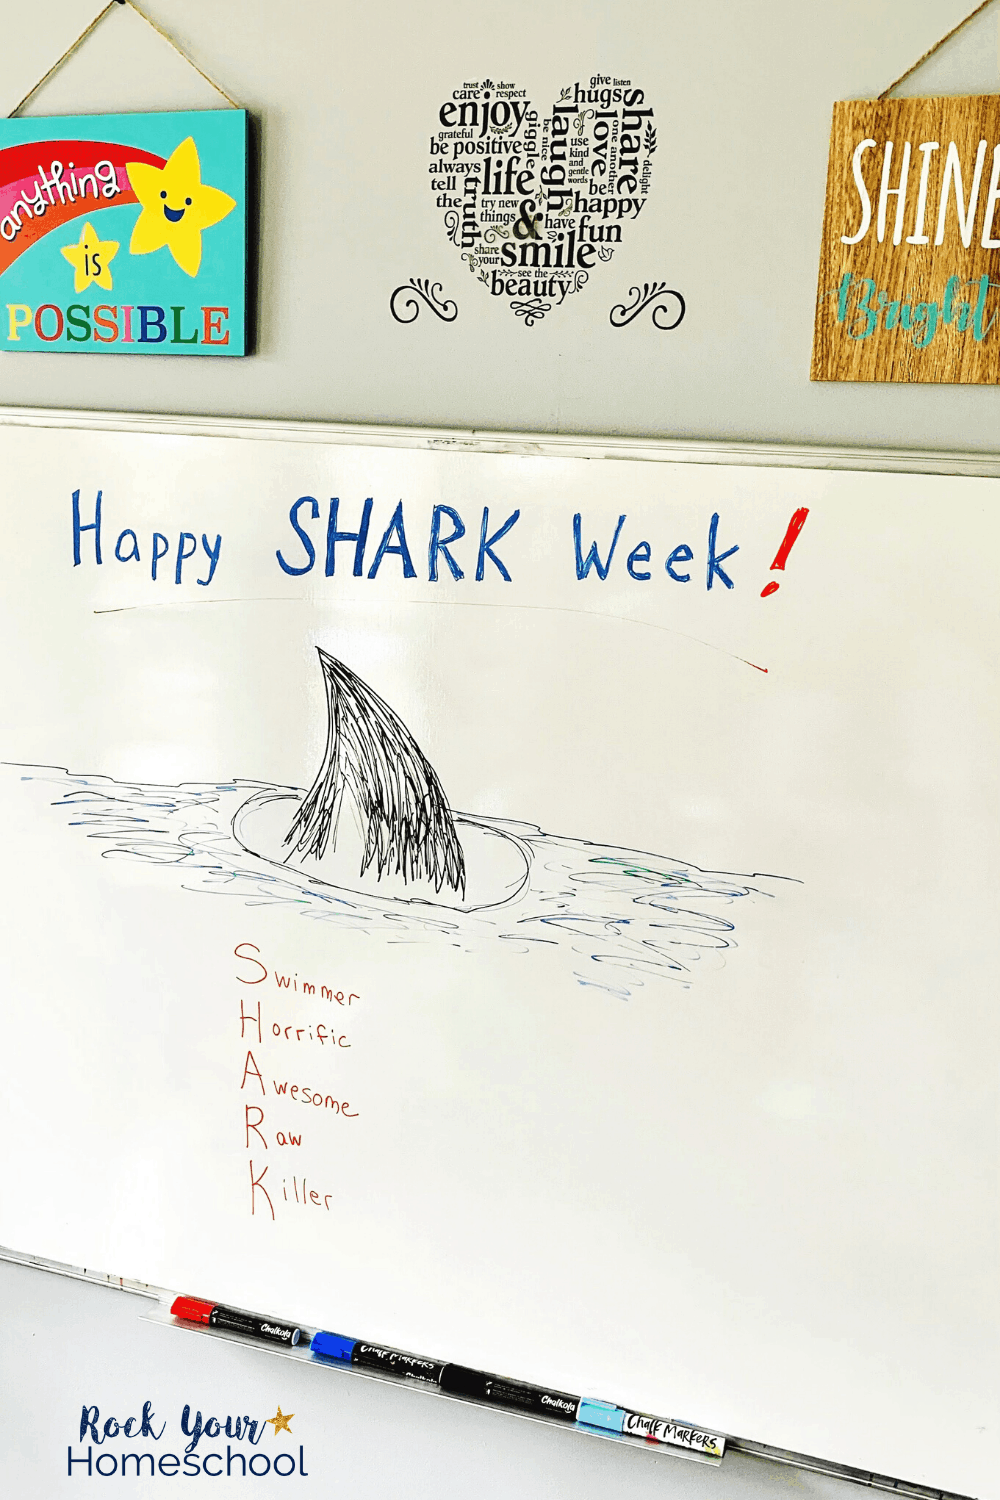 anything
is
POSSIBLE
trust show
care respect
enjoy
grateful
be positive
giggle
be nice
always
tell
the
truth
life
try new
things
&
laugh
give listen
hugs
share
love
one another
use
kind
and
gentle
words
delight
be
happy
have fun
share
your
smile
see the
beauty
SHINE
Bright
Happy SHARK Week!
Swimmer
Horrific
Awesome
Raw
Killer
Chalkola
CHALK MARKERS
Chalkola
CHALK MARKERS
Rock Your
Homeschool